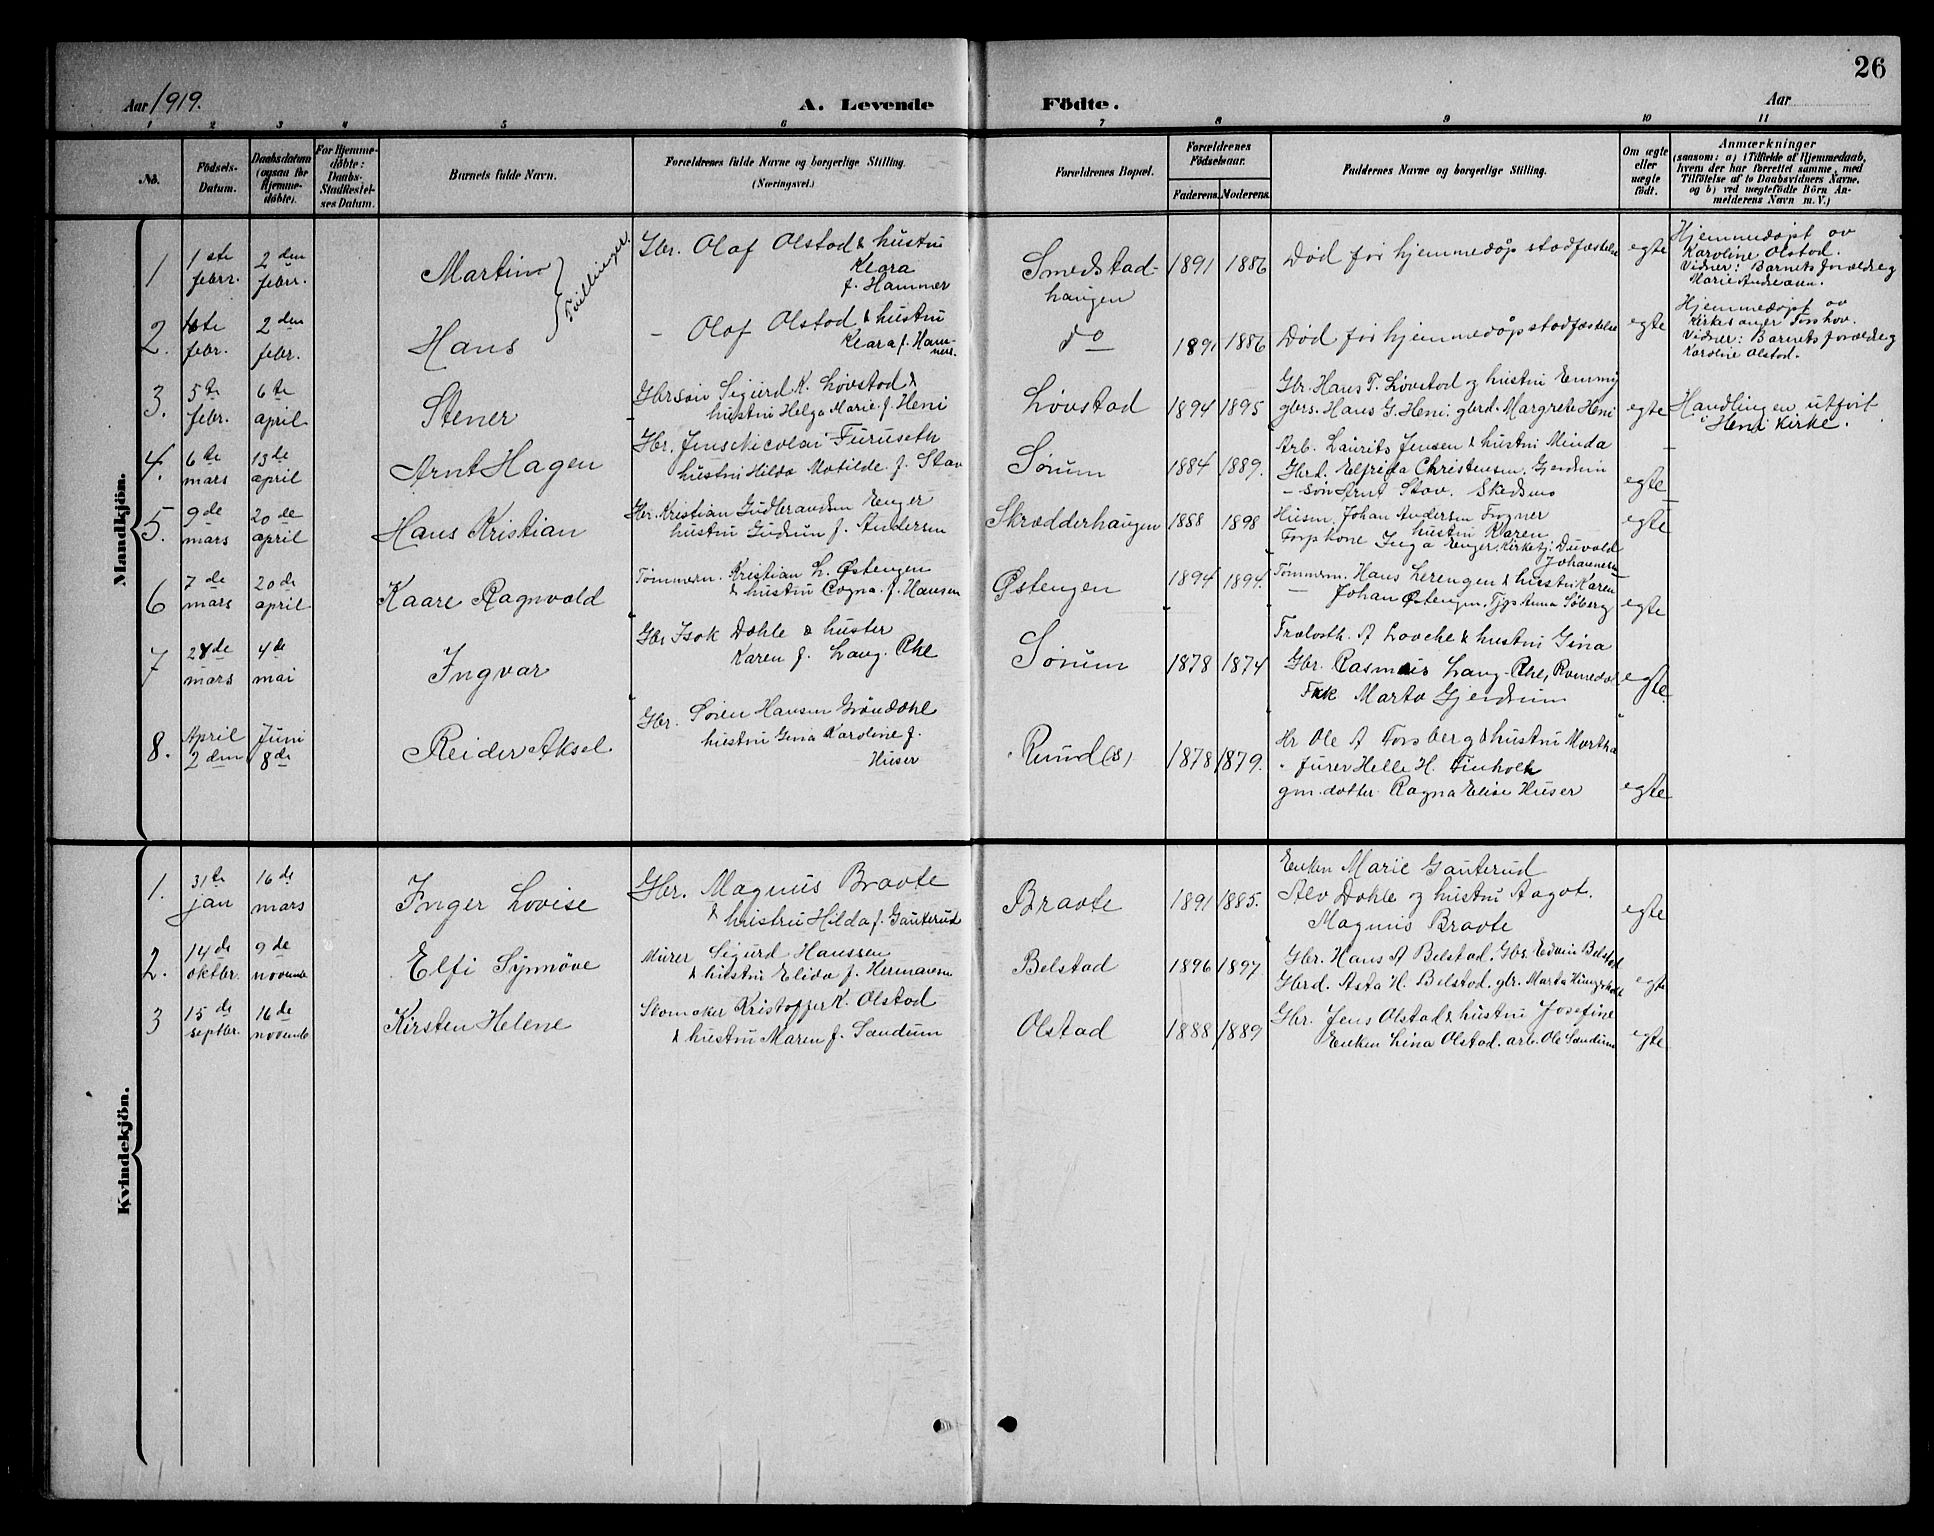 26
Aar 1919.
A. Levende
Födte.
Aar
1 2 3 4 5 6 7 8 9 10 11
No.
Födsels-Datum.
Daabsdatum (ogsaa for Hjemmedøbte).
For Hjemmedøbte: Daabs-Stadfæstelses Datum.
Barnets fulde Navn.
Forældrenes fulde Navne og borgerlige Stilling.
(Næringsvei.)
Forældrenes Bopæl.
Forældrenes Födselsaar.
Faderens. Moderens.
Faddernes Navne og borgerlige Stilling.
Om ægte eller uægte födt.
Anmærkninger
(saasom: a) i Tilfælde af Hjemmedaab, hvem der har forrettet samme, med Tilföielse af to Daabsvidners Navne, og b) ved uegtefödte Börn Anmelderens Navn m. V.)
Mandkjön.
1 1ste febr. 2den febr. Martin Tvillinger. Gbr. Olaf Olstad & hustru Klara f. Hammer Smedstadhaugen 1891 1886 Død før hjemmedøp stadfæstelse egte Hjemmedøpt av Karoline Olstad. Vidner: Barnets forældre og Marie Andreasen.
2. 1ste febr. 2den febr. Hans – Olaf Olstad & hustru Klara f. Hammer. do 1891 1886 Død før hjemmedøp stadfæstelse egte Hjemmedøpt av Kirkesanger Forshov. Vidner: Barnets forældre og Karoline Olstad.
3. 5te febr. 6te april Stener Gbrsøn Sigurd K. Løvstad & hustru Helga Marie f. Heni Løvstad 1894 1895 Gbr. Hans T. Løvstad og hustru Emmy gbrs. Hans G. Heni, gbrd. Margrete Heni egte Handlingen utført i Heni Kirke.
4. 6te mars 13de april Arnt Hagen Gbr. Jens Nicolai Furuseth hustru Hilda Matilde f. Stav Sørum 1884 1889. Arb. Laurits Jensen & hustru Minda Gbrd. Elfrida Christensen, Gjerdrum – søn Arnt Stav. Skedsmo egte –
5. 9de mars 20de april Hans Kristian Gbr. Kristian Gudbrandsen Enger hustru Gudrun f. Andersen Skrædderhaugen 1888 1898 Husm. Johan Andersen Frogner hustru Karen Forp kone Inga Enger, Kirketj. Duvald Johannesen egte
6 7de mars 20de april Kaare Ragnvald Tømmerm. Kristian L. Østengen & hustru Cogna f. Hansen Østengen 1894 1894. Tømmerm. Hans Lerengen & hustru Karen – Johan Østengen, Tjp Anna Søberg egte
7 28de mars 4de mai Ingvar Gbr Isak Dahle & huster Karen f. Lang-Ree Sørum 1878 1874 Trælasth. A Loocke & hustru Gina Gbr. Rasmus Lang-Ree, Frk Marta Gjerdrum egte.
8. April 2den Juni 8de Reider Aksel Gbr. Søren Hansen Grøndahl hustru Gina Karoline f. Huser Rund (s) 1878 1879. Hr Ole A Forsberg & hustru Martha furer Helle H. Finholt gm. datter Ragna Elise Huser egte
Kvindekjön.
1. 31te jan 16de mars Inger Lovise Gbr. Magnus Braate & hustru Hilda f. Gauterud Braate 1891 1885. Enken Marie Gauterud Alv Dahle og hustru Aagot. Magnus Braate egte
2. 14de oktbr. 9de novembr Elfi Synnøve Murer Sigurd Hanssen & hustru Elida f. Hermansen Belstad 1896 1897 Gbr. Hans A Belstad. Gbs. Edvin Belstad Gbrd. Asta H. Belstad, gbr. Marta egte
3 15de septbr. 16de novembr Kirsten Helene Skomaker Kristoffer K. Olstad & hustru Maren f. Sandum Olstad 1888 1889 Gbr. Jens Olstad & hustru Josefine Enken Lina Olstad. arb. Ole Sandum egte